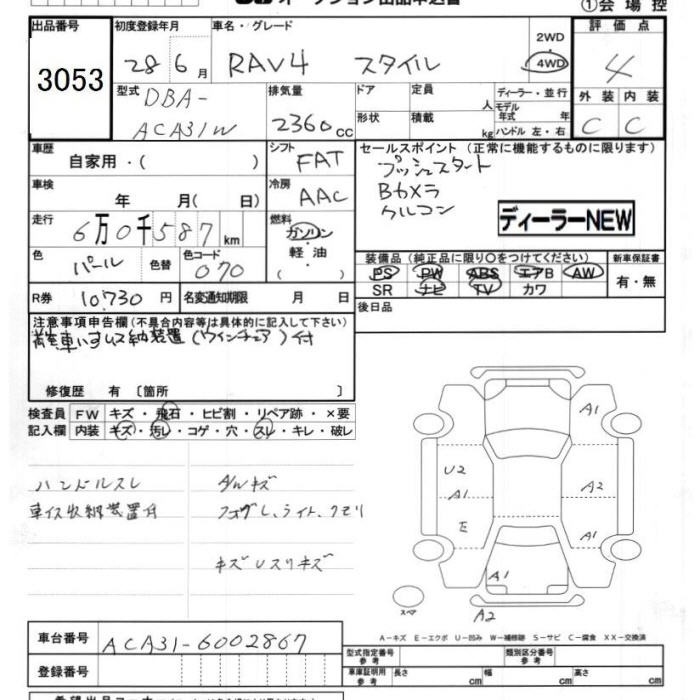 ①会場控
出品番号
3053
初度登録年月
28 6月
車名・グレード
RAV4 スタイル
2WD
4WD
評価点
4
型式
DBA-
ACA31W
排気量
2360cc
ドア
定員
人
形状
積載
kg
ディーラー・並行
モデル年式
年
ハンドル 左・右
外装
内装
C
C
車歴
自家用・( )
シフト
FAT
セールスポイント(正常に機能するものに限ります)
プッシュスタート
Bカメラ
クルコン
ディーラーNEW
車検
年 月( 日)
冷房
AAC
走行
6万0千587km
燃料
ガソリン
軽油
( )
色
パール
色替
色コード
070
装備品(純正品に限り○をつけてください)
新車保証書
PS PW ABS エアB AW
SR ナビ TV カワ
有・無
R券
10,730円
名変通知期限
月 日
後日品
注意事項申告欄(不具合内容等は具体的に記入して下さい)
装置(ウインチェア)付
修復歴 有〔箇所 〕
検査員
記入欄
FW
キズ・飛石・ヒビ割・リペア跡・×要
内装
キズ・汚レ・コゲ・穴・スレ・キレ・破レ
ハンドルスレ
車イス収納装置付
ダメキズ
ライト、クモリ
キズ
A1
U2
A1
A2
E
A1
A1
スペア
A2
A-キズ E-エクボ U-凹み W-補修跡 S-サビ C-腐食 XX-交換済
車台番号
ACA31-6002867
登録番号
型式指定番号
参考
類別区分番号
参考
車庫証明用
参考
長さ
cm
幅
cm
高さ
cm